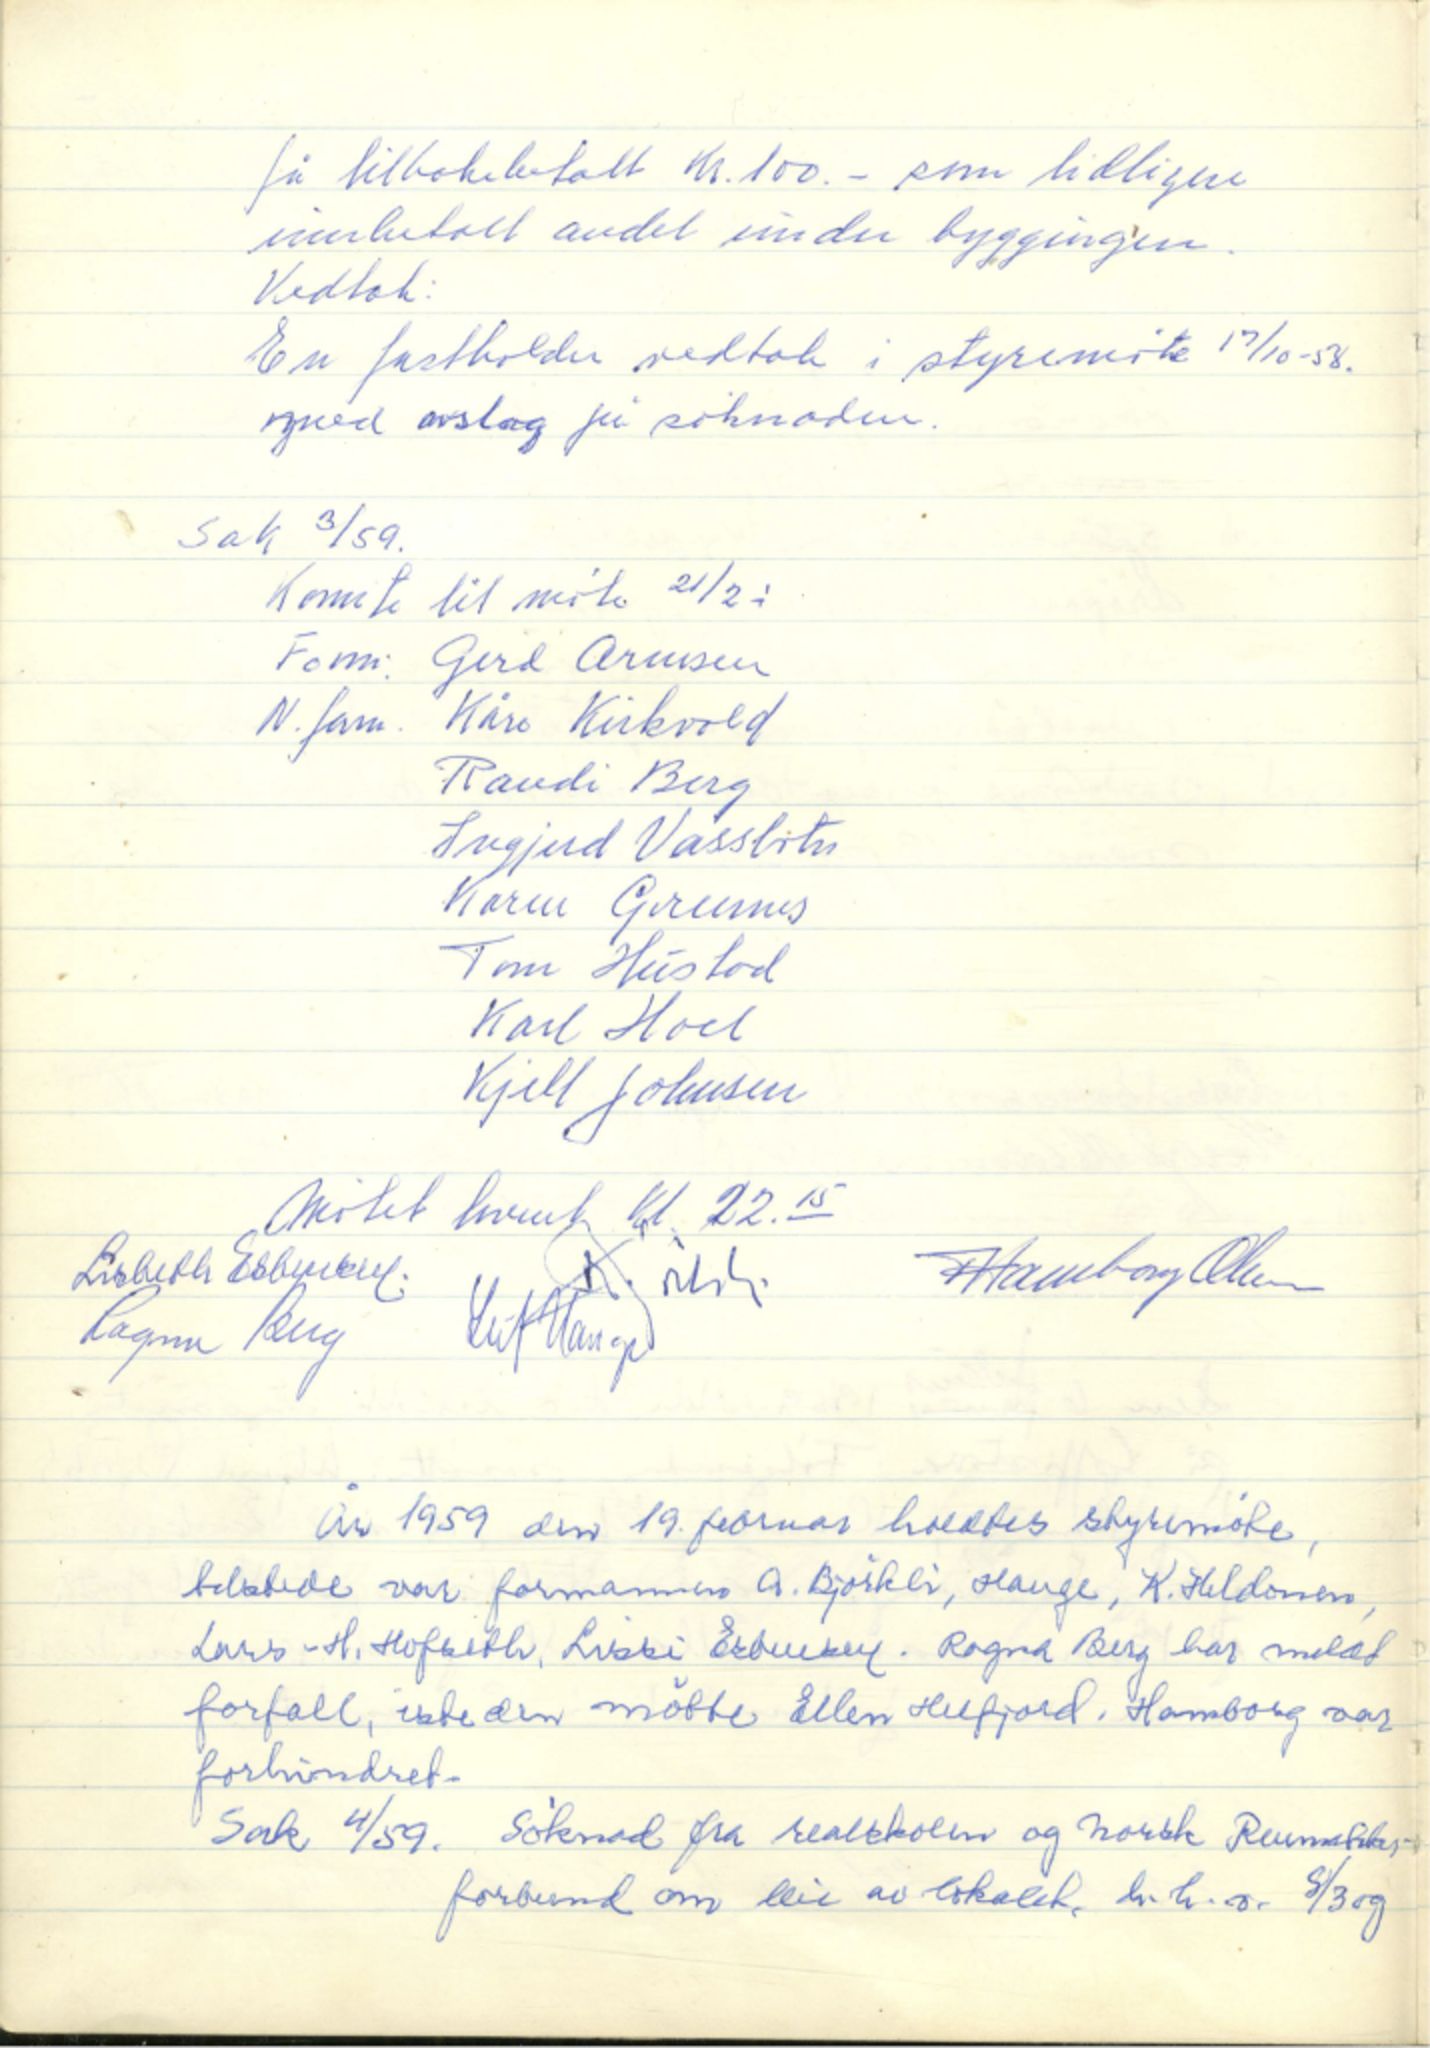 få tilbakebetalt kr. 100.- som tidligere
innbetalt andel under byggingen.
Vedtak:
En fastholder vedtak i styremöte 17/10-58.
med avslag på söknaden.
Sak 3/59.
Komite til möte 21/2:
Form: Gerd Arnesen
N.form. Kåre Kirkvold
Randi Berg
Ingjerd Vasslotn
Karen Grennes
Tom Hustad
Karl Hoel
Kjell Johnsen
Mötet hevet kl. 22.15
Lisbeth Esbensen. Hamborg Olsen
Ragna Berg Leif Hauge
År 1959 den 19. februar holdtes styremöte,
tilstede var formannen A. Björkli, Hauge, K. Heldonen,
Lars-H. Hofseth, Lissi Esbensen. Ragna Berg har meldt
forfall, isteden mötte Ellen Hufjord. Hamborg var
forhindret.
Sak 4/59. Söknad fra realskolen og Norsk Reumatiker-
forbund om leie av lokalet, h.h.v. 8/3 og